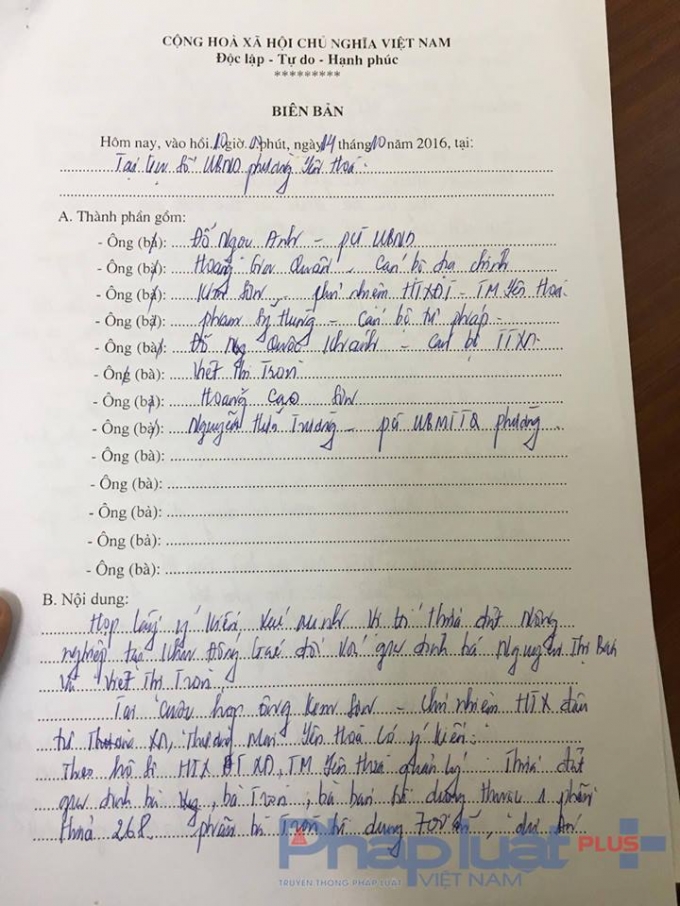 CỘNG HOÀ XÃ HỘI CHỦ NGHĨA VIỆT NAM
Độc lập - Tự do - Hạnh phúc
*********
BIÊN BẢN
Hôm nay, vào hồi 10 giờ 0 phút, ngày 14 tháng 10 năm 2016, tại:
Tại trụ sở UBND phường Yên Hoà
A. Thành phần gồm:
- Ông (bà): Đỗ Ngọc Anh - PCT UBND
- Ông (bà): Hoàng Quân - Cán bộ địa chính
- Ông (bà): Kim Sơn, chủ nhiệm HTXĐT - TM Yên Hoà
- Ông (bà): Phạm Sỹ Hưng - Cán bộ tư pháp
- Ông (bà): Đỗ Quốc Khánh - Cán bộ TTXD
- Ông (bà): Viết Thị Tròn
- Ông (bà): Hoàng Cao Sơn
- Ông (bà): Nguyễn Trường - PCT UBMTTQ phường
- Ông (bà):
- Ông (bà):
- Ông (bà):
- Ông (bà):
- Ông (bà):
B. Nội dung:
Họp lấy ý kiến xác minh vị trí thửa đất nông
nghiệp tại khu Đồng đối với gia đình bà Nguyễn Thị
và Viết Thị Tròn
Tại cuộc họp ông Kim Sơn - Chủ nhiệm HTX đầu
tư XD, Thương Mại Yên Hoà có ý kiến:
Theo hồ sơ HTX ĐT XD, TM Yên Hoà quản lý: Thửa đất
gia đình bà, bà Tròn, bà sử dụng thuộc 1 phần
thửa 268 phần bà Tròn sử dụng
Pháp luật PLUS
TRUYỀN THÔNG PHÁP LUẬT VIỆT NAM